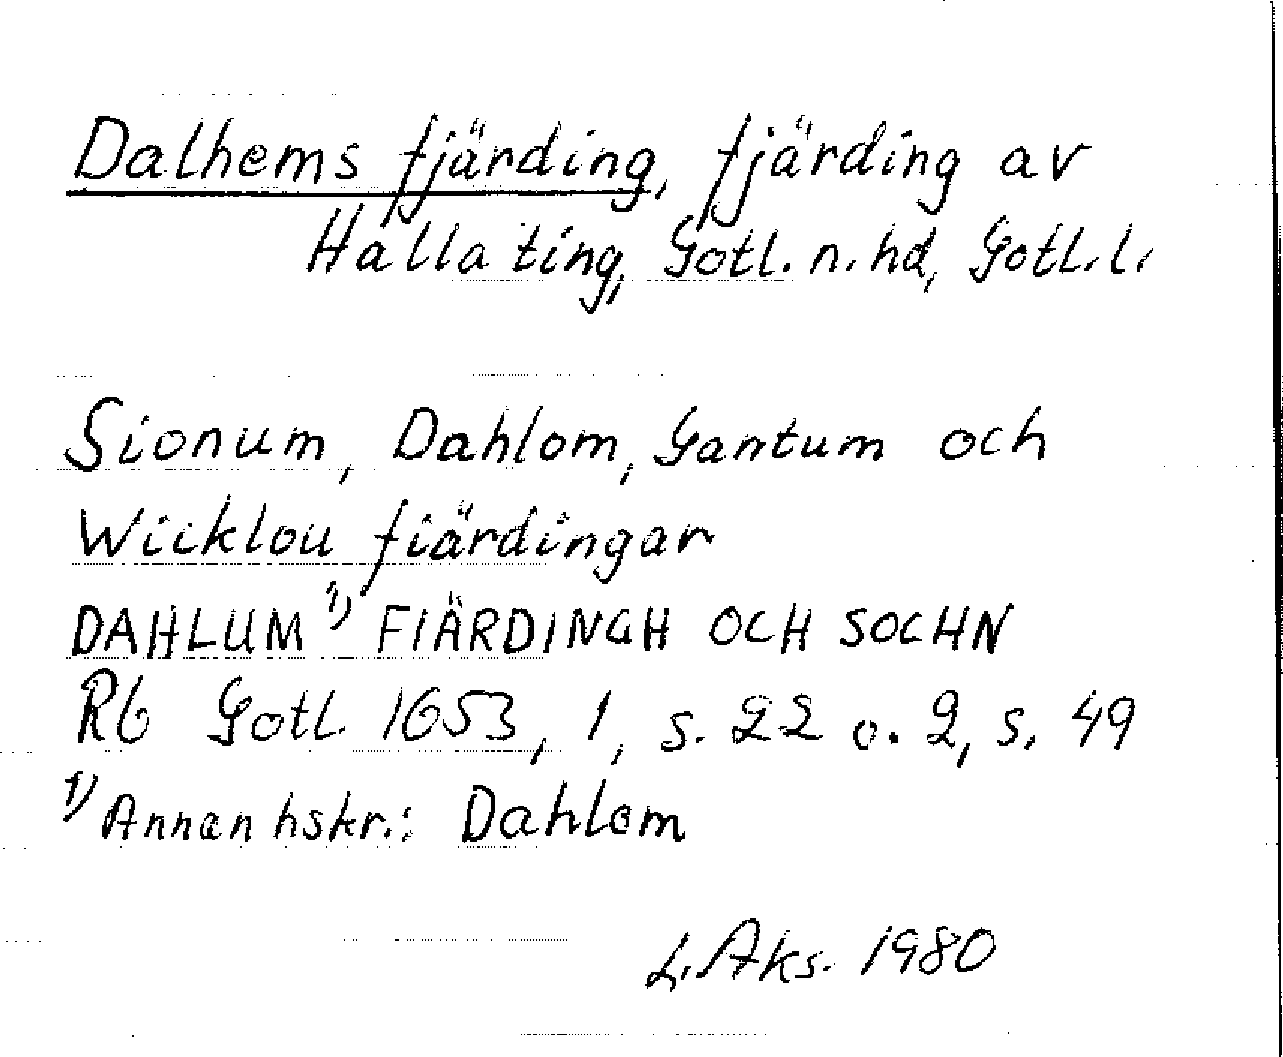 Dalhems fjärding, fjärding av
Halla ting, Gotl. n. hd, Gotl. l.
Sionum, Dahlom, Gantum och
Wiiklou fiärdingar
DAHLUM 1) FIÄRDINGH OCH SOCHN
Rb Gotl. 1653, 1, s. 22 o. 2, s. 49
1) Annan hskr.: Dahlom
L. Aks. 1980